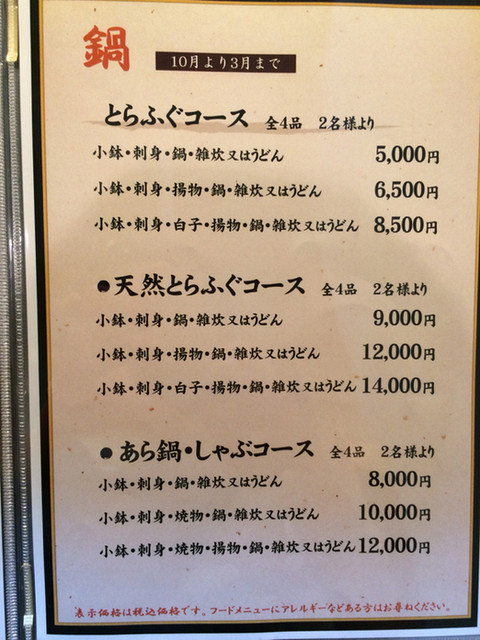 鍋
10月より3月まで
とらふぐコース 全4品 2名様より
小鉢・刺身・鍋・雑炊又はうどん 5,000円
小鉢・刺身・揚物・鍋・雑炊又はうどん 6,500円
小鉢・刺身・白子・揚物・鍋・雑炊又はうどん 8,500円
●天然とらふぐコース 全4品 2名様より
小鉢・刺身・鍋・雑炊又はうどん 9,000円
小鉢・刺身・揚物・鍋・雑炊又はうどん 12,000円
小鉢・刺身・白子・揚物・鍋・雑炊又はうどん 14,000円
●あら鍋・しゃぶコース 全4品 2名様より
小鉢・刺身・鍋・雑炊又はうどん 8,000円
小鉢・刺身・焼物・鍋・雑炊又はうどん 10,000円
小鉢・刺身・焼物・揚物・鍋・雑炊又はうどん 12,000円
表示価格は税込価格です。フードメニューにアレルギーなどある方はお尋ねください。